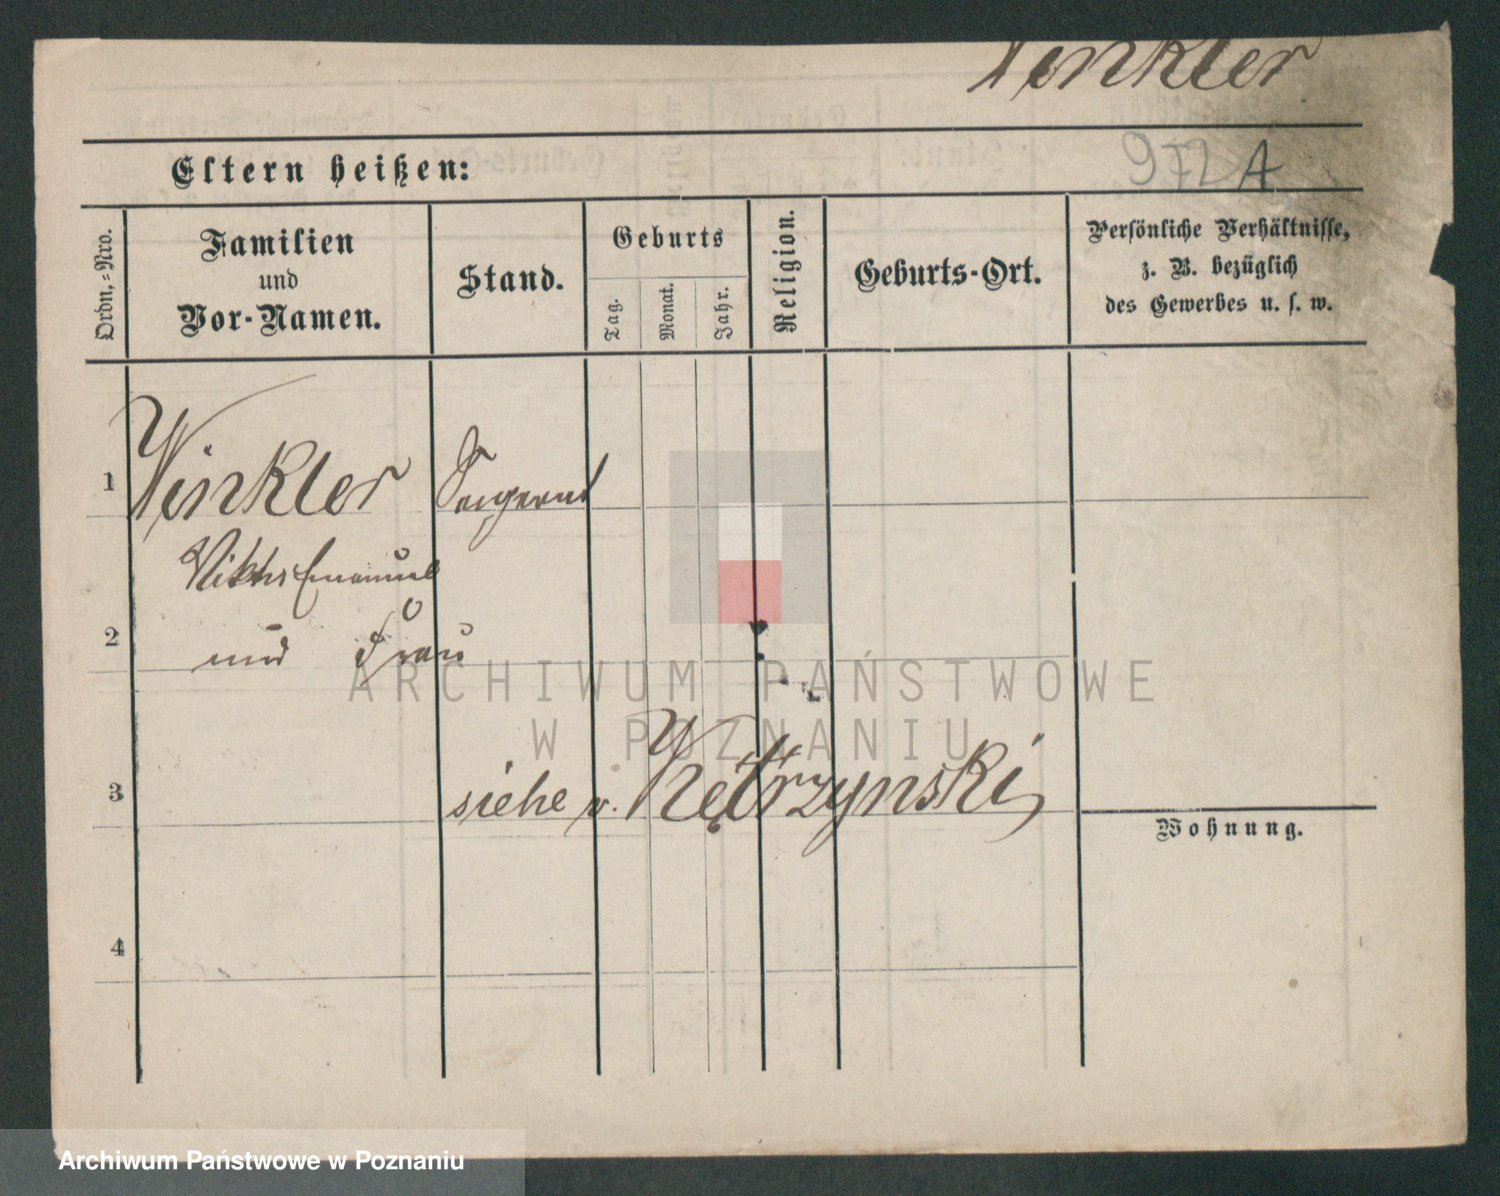 Winkler
972A
Eltern heißen:
Ordn.-Nro.
Familien
und
Vor-Namen.
Stand.
Geburts
Tag.
Monat.
Jahr.
Religion.
Geburts-Ort.
Persönliche Verhältnisse,
z. B. bezüglich
des Gewerbes u. s. w.
1 Winkler
Viktor Emanuel
2 und Frau
3 siehe v. Kętrzynski
Wohnung.
4
ARCHIWUM PAŃSTWOWE
W POZNANIU
Archiwum Państwowe w Poznaniu